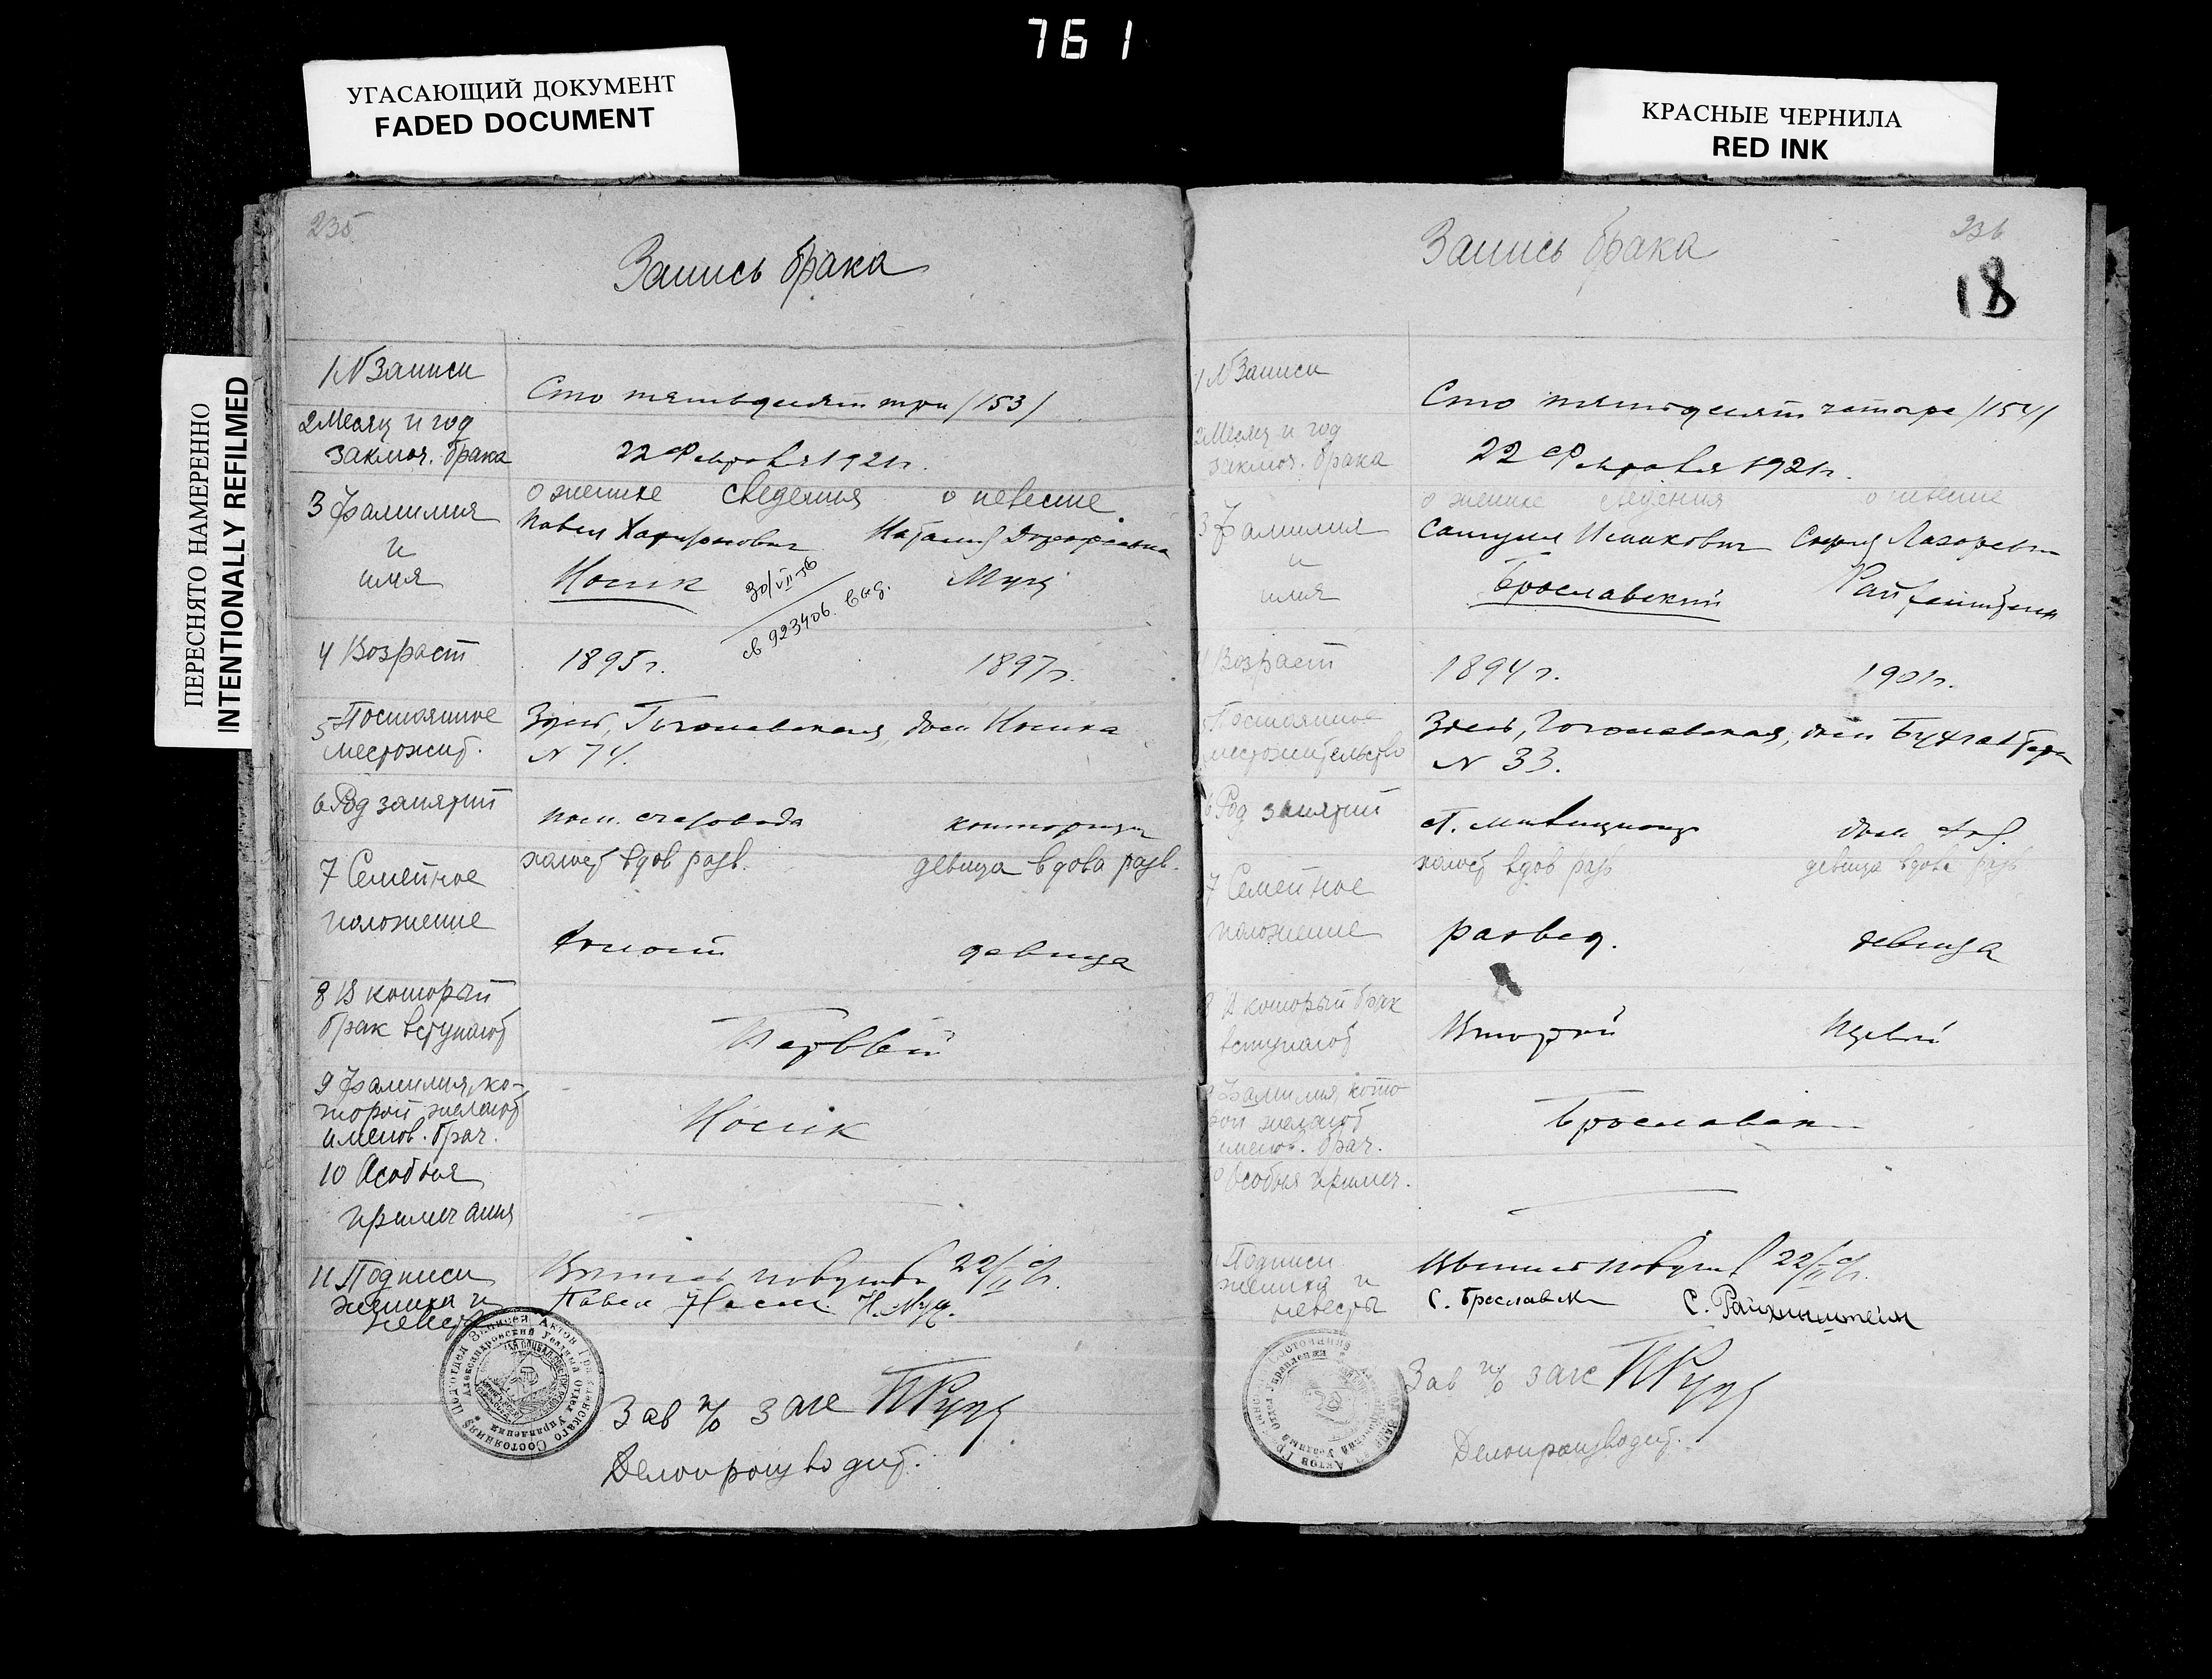 761
УГАСАЮЩИЙ ДОКУМЕНТ
FADED DOCUMENT
КРАСНЫЕ ЧЕРНИЛА
RED INK
ПЕРЕСНЯТО НАМЕРЕННО
INTENTIONALLY REFILMED
235
Запись брака
1 N Записи
Сто пятьдесят три /153/
2 Месяц и год
заключ. брака
22 Февраля 1921 г.
о женихе сведения о невесте.
3 Фамилия
и
имя
Павел Наталия
Носик Муц
30/VII-56
св 923406. выд.
4 Возраст
1895 г. 1897 г.
5 Постоянное
местожит.
Здесь, Гоголевская, дом Носика
N 74.
6 Род занятий
пом. счетовода конторщица
7 Семейное
положение
холост вдов разв. девица вдова разв.
Холост девица
8 В который
брак вступают
Первый
9 Фамилия, ко-
торой желают
именов. брач.
Носик
10 Особыя
примечания
11 Подписи
жениха и
невесты
22/II с/г.
Павел Носик Н. Муц.
Зав п/о загс
Делопроизводит.
236
18
Запись брака
1 N Записи
Сто пятьдесят четыре /154/
2 Месяц и год
заключ. брака
22 Февраля 1921 г.
о женихе сведения о невесте
3 Фамилия
и
имя
Самуил Исаакович София Лазаревна
Брославский Райхенштейн
4 Возраст
1894 г. 1901 г.
5 Постоянное
местожительство
Здесь, Гоголевская, дом
N 33.
6 Род занятий
ст. милиционер дом. хоз.
7 Семейное
положение
холост вдов разв девица вдова разв
развед. девица
8 В который брак
вступают
Второй Первый
9 Фамилия, кото-
рой желают
именов. брач.
10 Особыя примеч.
11 Подписи
жениха и
невесты
22/II с/г.
С. Бреславск С. Райхинштейн
Зав п/о загс
Делопроизводит.